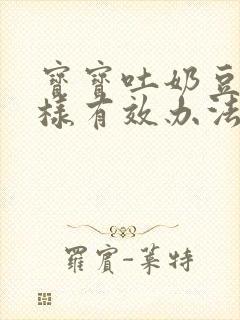 寶寶吐奶豆
樣有效办法
羅賓-萊特